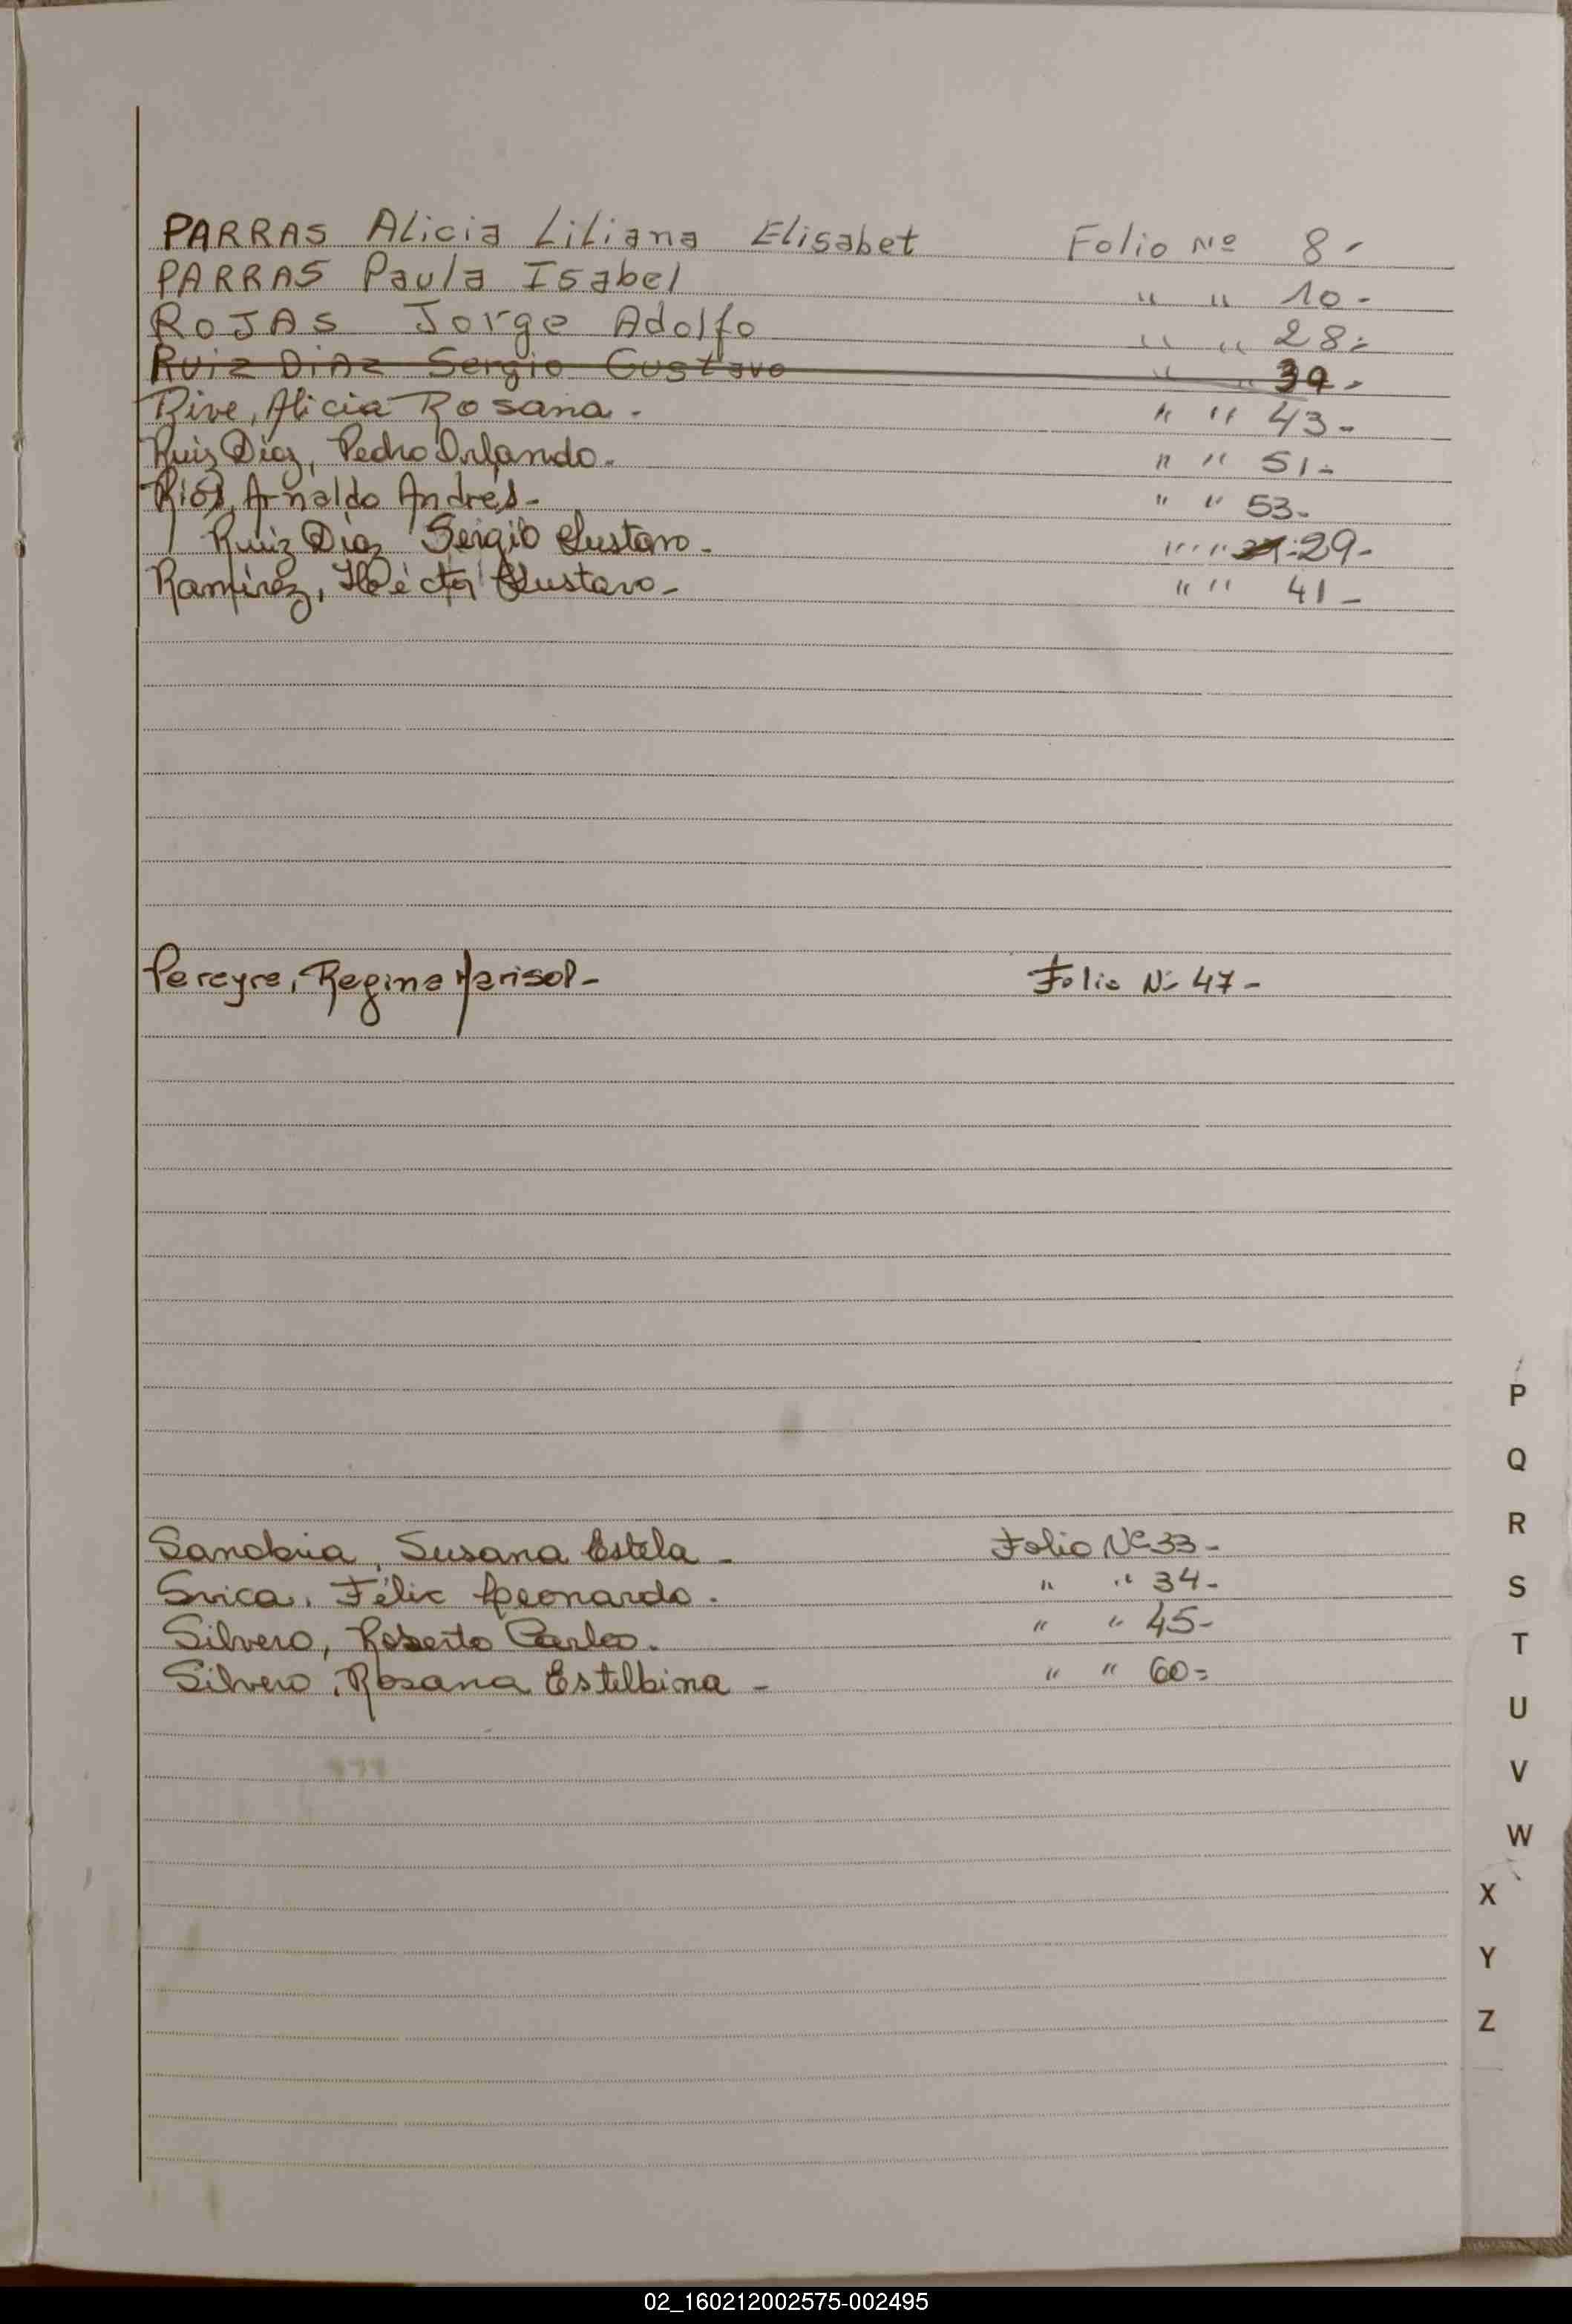 PARRAS Alicia Liliana Elisabet Folio Nº 8-
PARRAS Paula Isabel " " 10-
ROJAS Jorge Adolfo " " 28=
Ruiz DiAz Sergio Gustavo " " 39-
Rive, Alicia Rosana. " " 43-
Ruiz Diaz, Pedro Orlando. " " 51-
Ríos, Arnaldo Andrés- " " 53-
Ruiz Diaz Sergio Gustavo. " " 29-
Ramírez, Héctor Gustavo- " " 41-
Pereyra, Regina Marisol- Folio Nº 47-
Sanabria, Susana Estela - Folio Nº 33-
Félix Leonardo. " " 34-
Silvero, Roberto Carlos. " " 45-
Silvero, Rosana Estelbina - " " 60=
P
Q
R
S
T
U
V
W
X
Y
Z
02_160212002575-002495